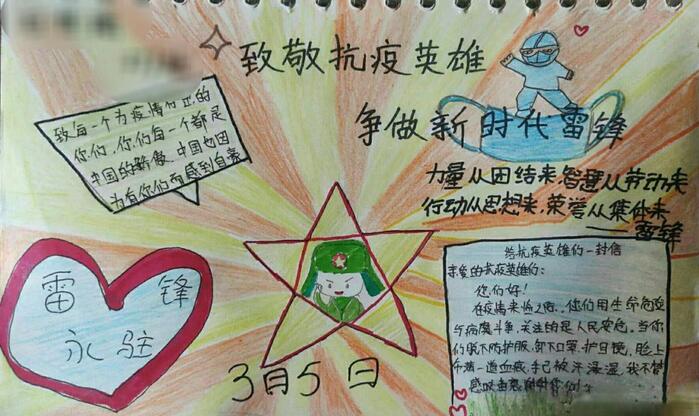 致敬抗疫英雄
争做新时代雷锋
致每一个为疫情付出的
你们,你们每一个都是
中国的骄傲,中国也因
为有你们而感到自豪
力量从团结来,智慧从劳动来
行动从思想来,荣誉从集体来
——雷锋
雷锋
永驻
3月5日
给抗疫英雄的一封信
亲爱的抗疫英雄们:
您们好!
在疫情来临之际,您们用生命危险
与病魔斗争,关注的是人民安危。当你
们脱下防护服、卸下口罩、护目镜,脸上
一道道血痕,手已被汗浸湿,我不禁
感叹